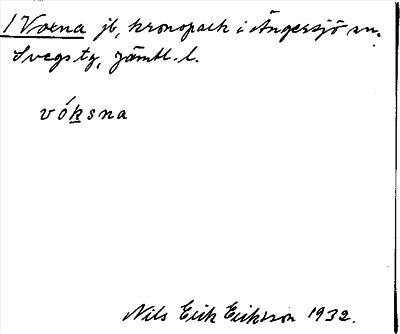 1 Voxna jb, kronopark i Ängersjö sn.
Svegs tg, Jämtl. l.
vóksna
Nils Erik Eriksson 1932.